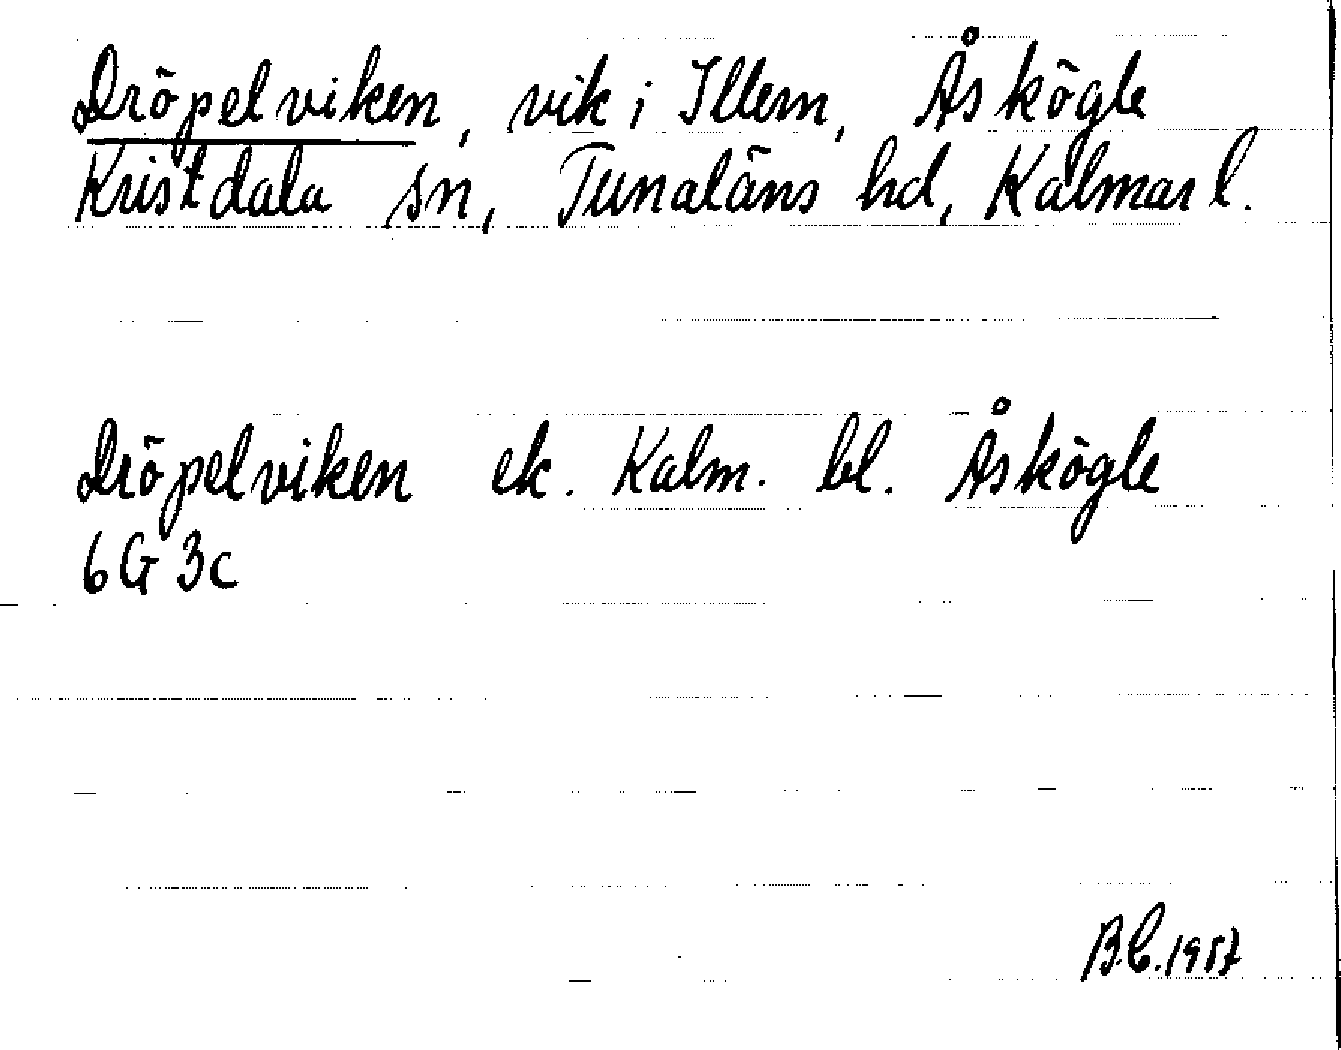 Dröpelviken, vik i Illern, Åskögle
Kristdala sn, Tunaläns hd, Kalmar l.
Dröpelviken ek. Kalm. bl. Åskögle
6G 3c
B.C. 1987